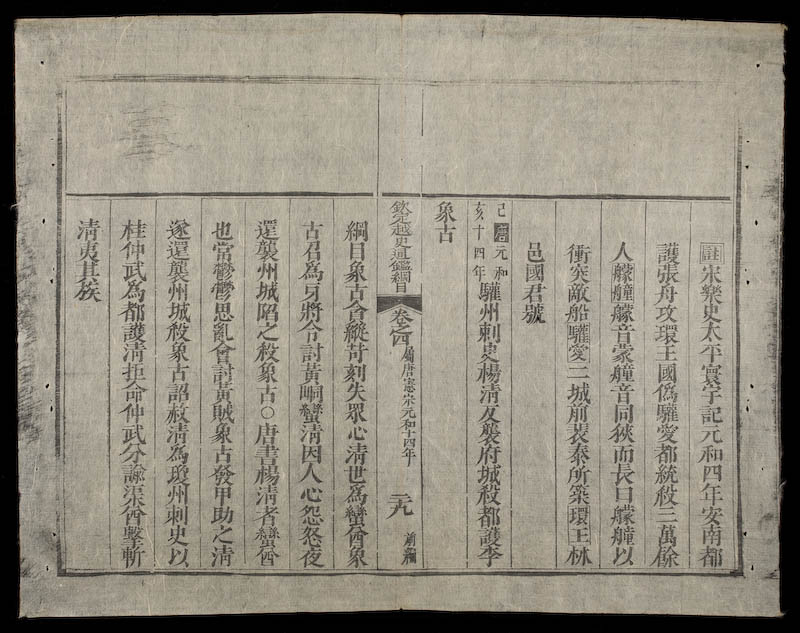 註宋樂史太平寰宇記元和四年安南都
護張舟攻環王國僞驩愛都統殺三萬餘
人艨艟艨音蒙艟音同狹而長曰艨艟以
衝突敵船驩愛二城前裴泰所築環王林
邑國君號
己亥唐元和十四年驩州刺史楊清反襲府城殺都護李
象古
欽定越史通鑑綱目
卷之四
屬唐憲宗元和十四年
二九
前編
綱目象古貪縱苛刻失眾心清世爲蠻酋象
古召爲牙將令討黃峒蠻清因人心怨怒夜
還襲州城陷之殺象古○唐書楊清者蠻酋
也常鬱鬱思亂會討黃賊象古發甲助之清
遂還襲州城殺象古詔赦清爲瓊州刺史以
桂仲武爲都護清拒命仲武分諭渠酋擊斬
清夷其族